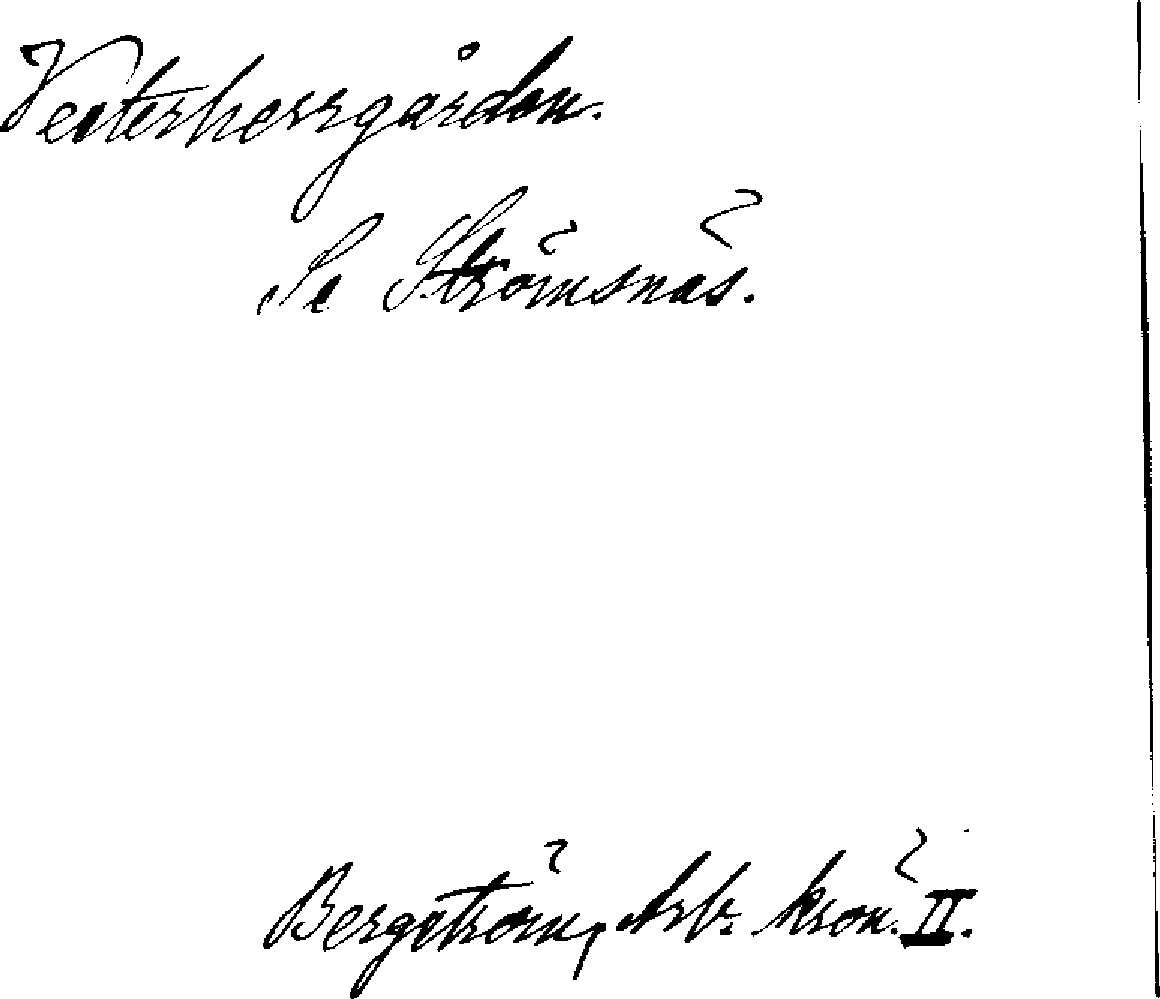 Vesterherrgården.
Se Strömsnäs.
Bergström, Arb. krön. II.